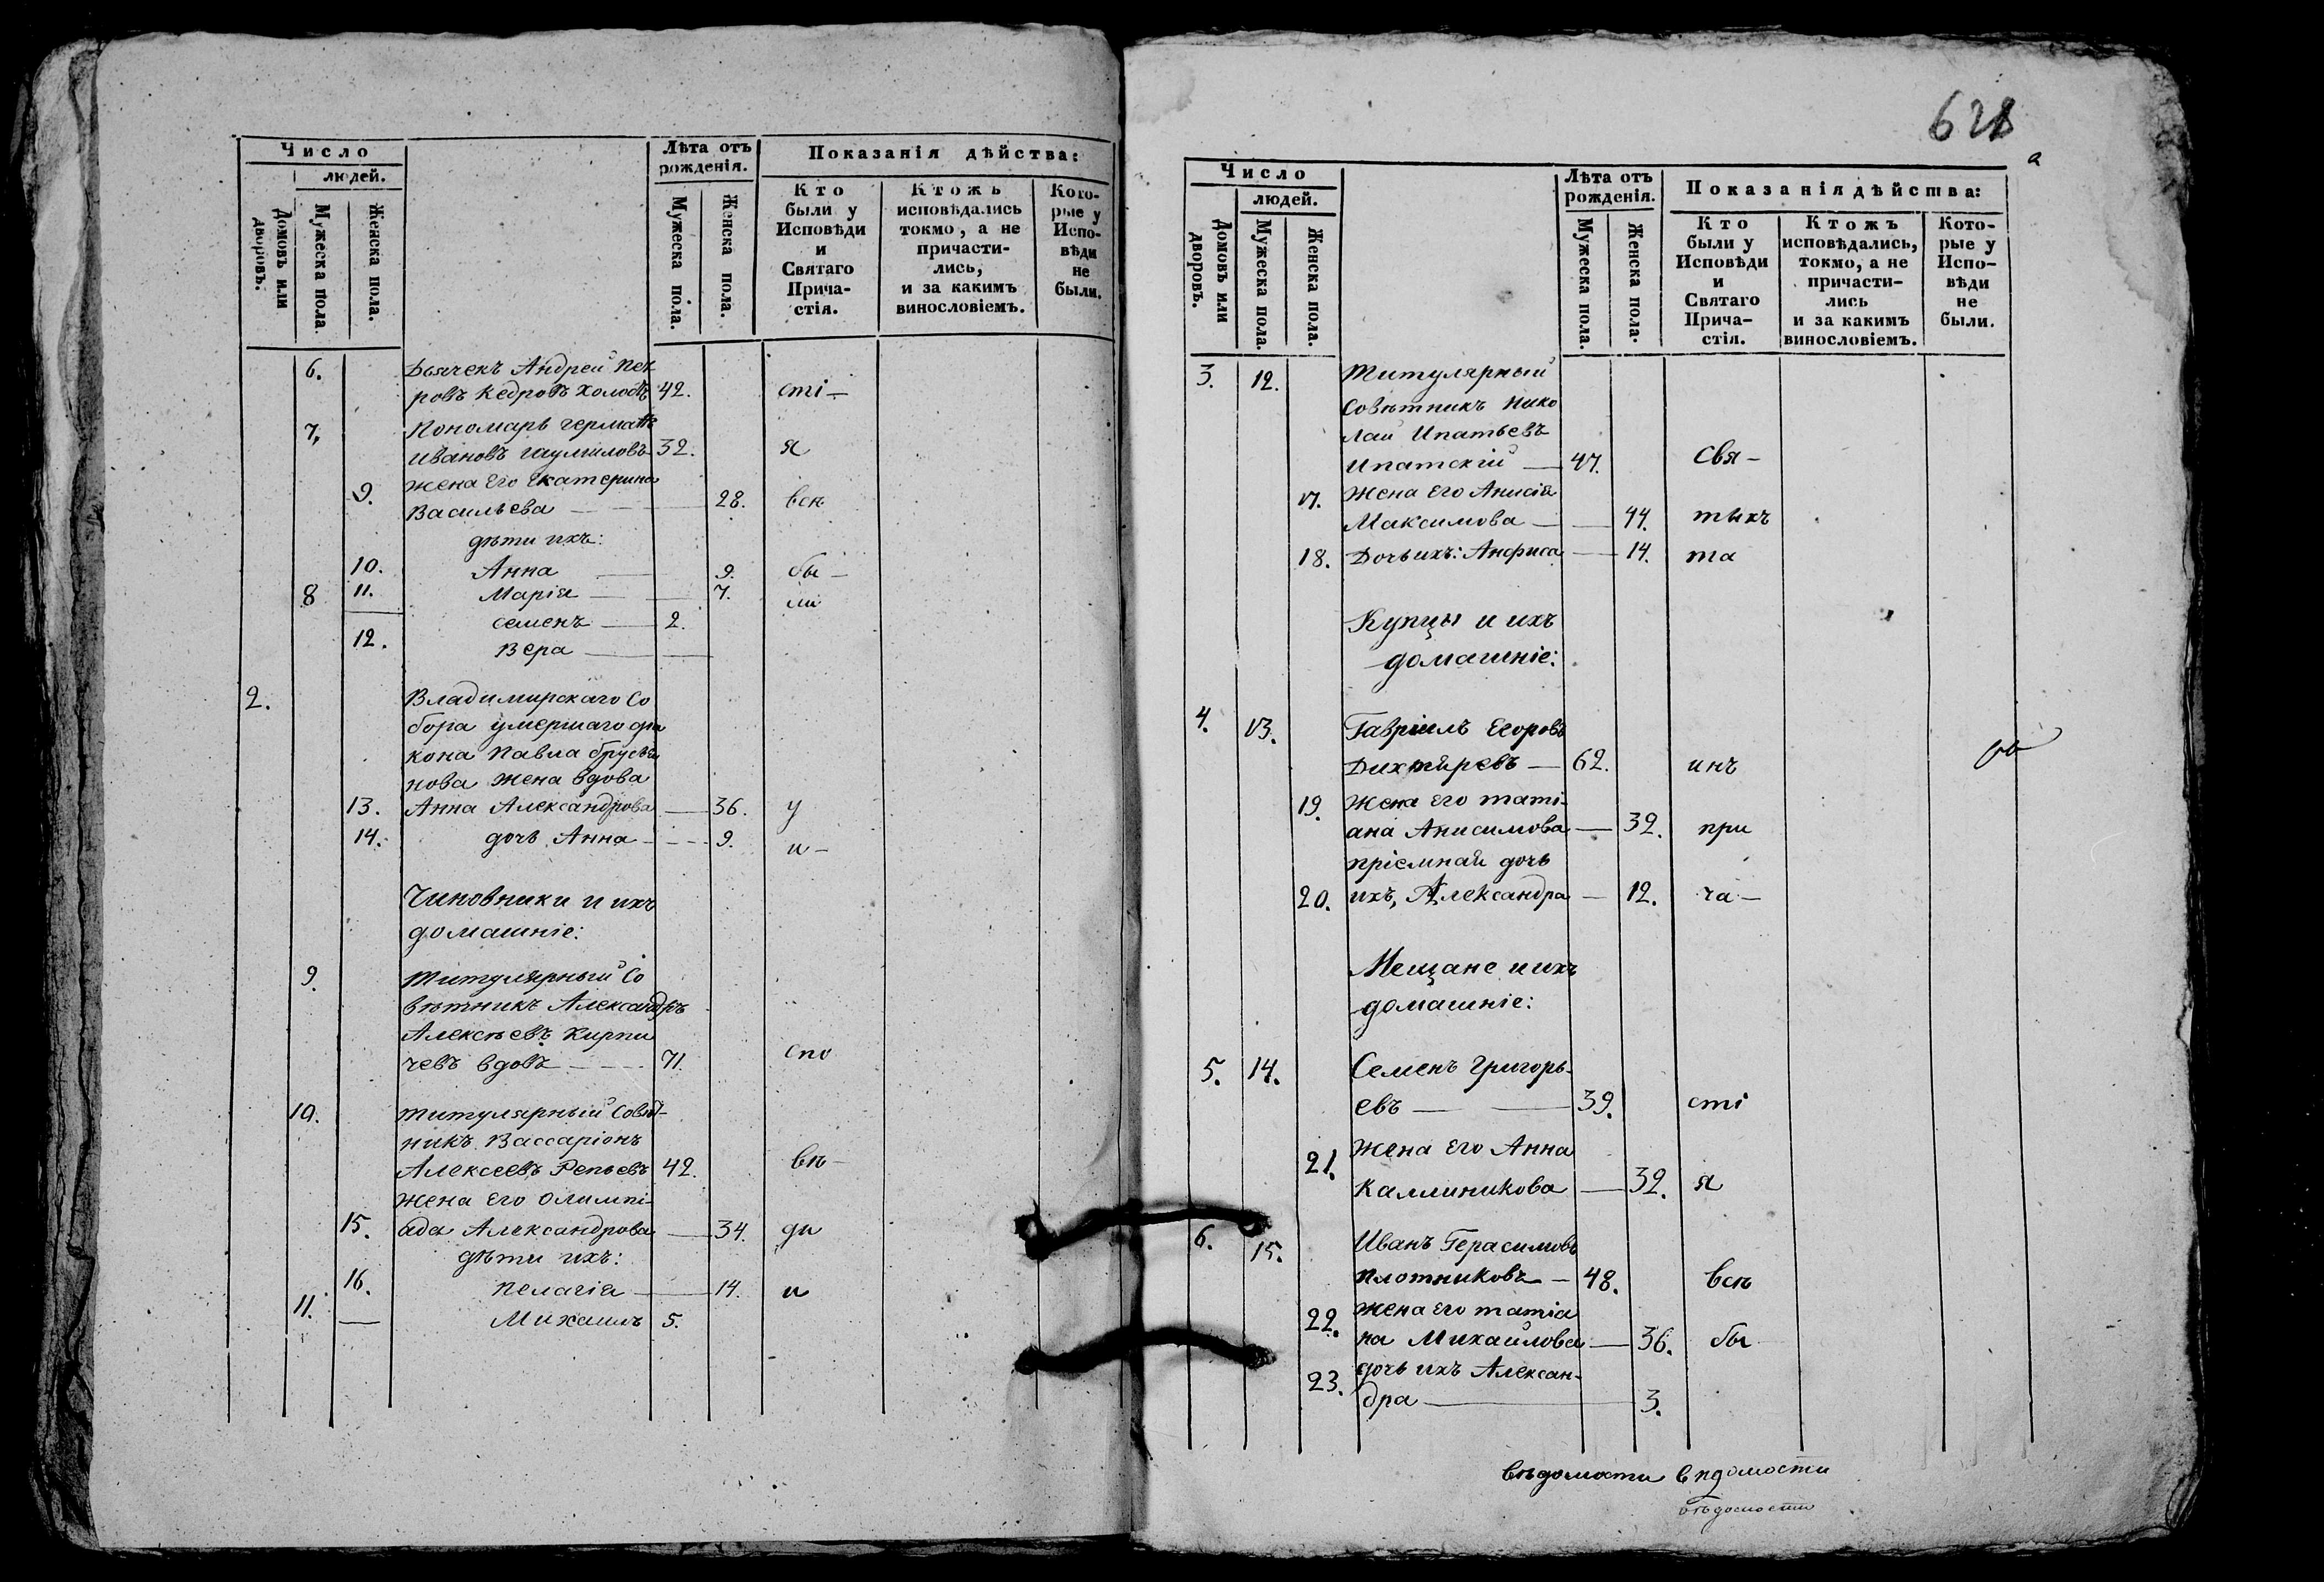 Число
людей.
Домовъ или дворовъ.
Мужеска пола.
Женска пола.
Лѣта отъ рожденія.
Мужеска пола.
Женска пола.
Показанія дѣйства:
Кто были у Исповѣди и Святаго Прича-
стія.
Ктожъ исповѣдались токмо, а не причасти-
лись, и за какимъ винословіемъ.
Кото-
рые у Испо-
вѣди не были.
6. Дьячекъ Андрей Пет
ровъ Кедровъ холостъ 42. сті-
7. Пономарь Германъ
Ивановъ 32. я
9. жена его Екатерина
Васильева — 28. всѣ
дѣти ихъ:
10. Анна — 9. бы-
8 11. Марія — 7. ли
Семенъ — 2.
12. Вера —
2. Владимирскаго Со
бора умершаго діа
кона Павла
нова жена вдова
13. Анна Александрова — 36. у
14. дочь Анна — 9. и-
Чиновники и ихъ
домашніе:
9. Титулярный Со
вѣтникъ Александръ
Алексѣевъ Кирпи
чевъ вдовъ — 71. спо
10. Титулярный Совѣт-
никъ Вассаріонъ
Алексеевъ Репьевъ 42. вѣ-
жена его Олимпі-
15. ада Александрова — 34. ди
дѣти ихъ:
16. Пелагія — 14. и
11. — Михаилъ 5.
628
а
Число
людей.
Домовъ или дворовъ.
Мужеска пола.
Женска пола.
Лѣта отъ рожденія.
Мужеска пола.
Женска пола.
Показанія дѣйства:
Кто были у Исповѣди и Святаго Прича-
стія.
Ктожъ исповѣдались, токмо, а не причасти-
лись и за какимъ винословіемъ.
Кото-
рые у Испо-
вѣди не были.
3. 12. Титулярный
Совѣтникъ Нико
лай Ипатьевъ
Ипатскій — 47. Свя-
17. Жена его Анисія
Максимова — 44. тыхъ
18. Дочь ихъ: Анфиса — 14. та
Купцы и ихъ
домашніе:
4. 13. Гавріилъ Егоровъ
Дихтяревъ — 62. инъ
19. Жена его Таті-
ана Анисимова — 32. при
пріемная дочь
20. ихъ, Александра — 12. ча-
Мещане и ихъ
домашніе:
5. 14. Семенъ Григорь-
евъ — 39. сті
21. Жена его Анна
Каллиникова — 32. я
6. 15. Иванъ Герасимовъ
Плотниковъ — 48. всѣ
22. жена его Татіа
на Михайлова — 36. бы
23. дочь ихъ Алексан-
дра — 3.
вѣдомости вѣдомости
вѣдомости